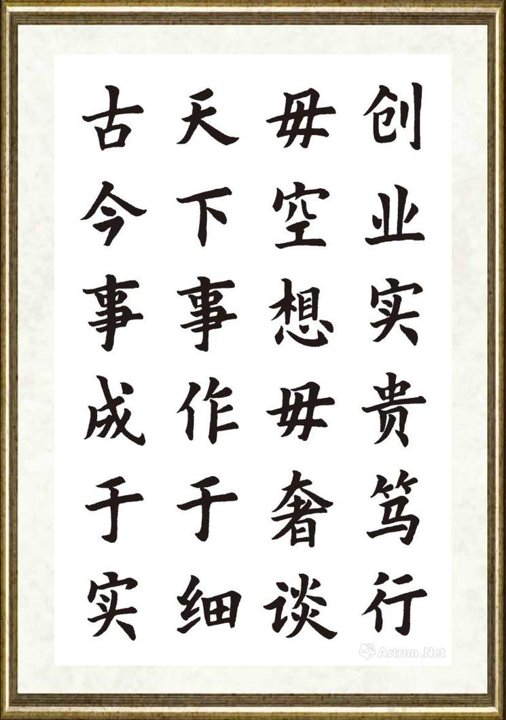 创业实贵笃行
毋空想毋奢谈
天下事作于细
古今事成于实
Artron.Net